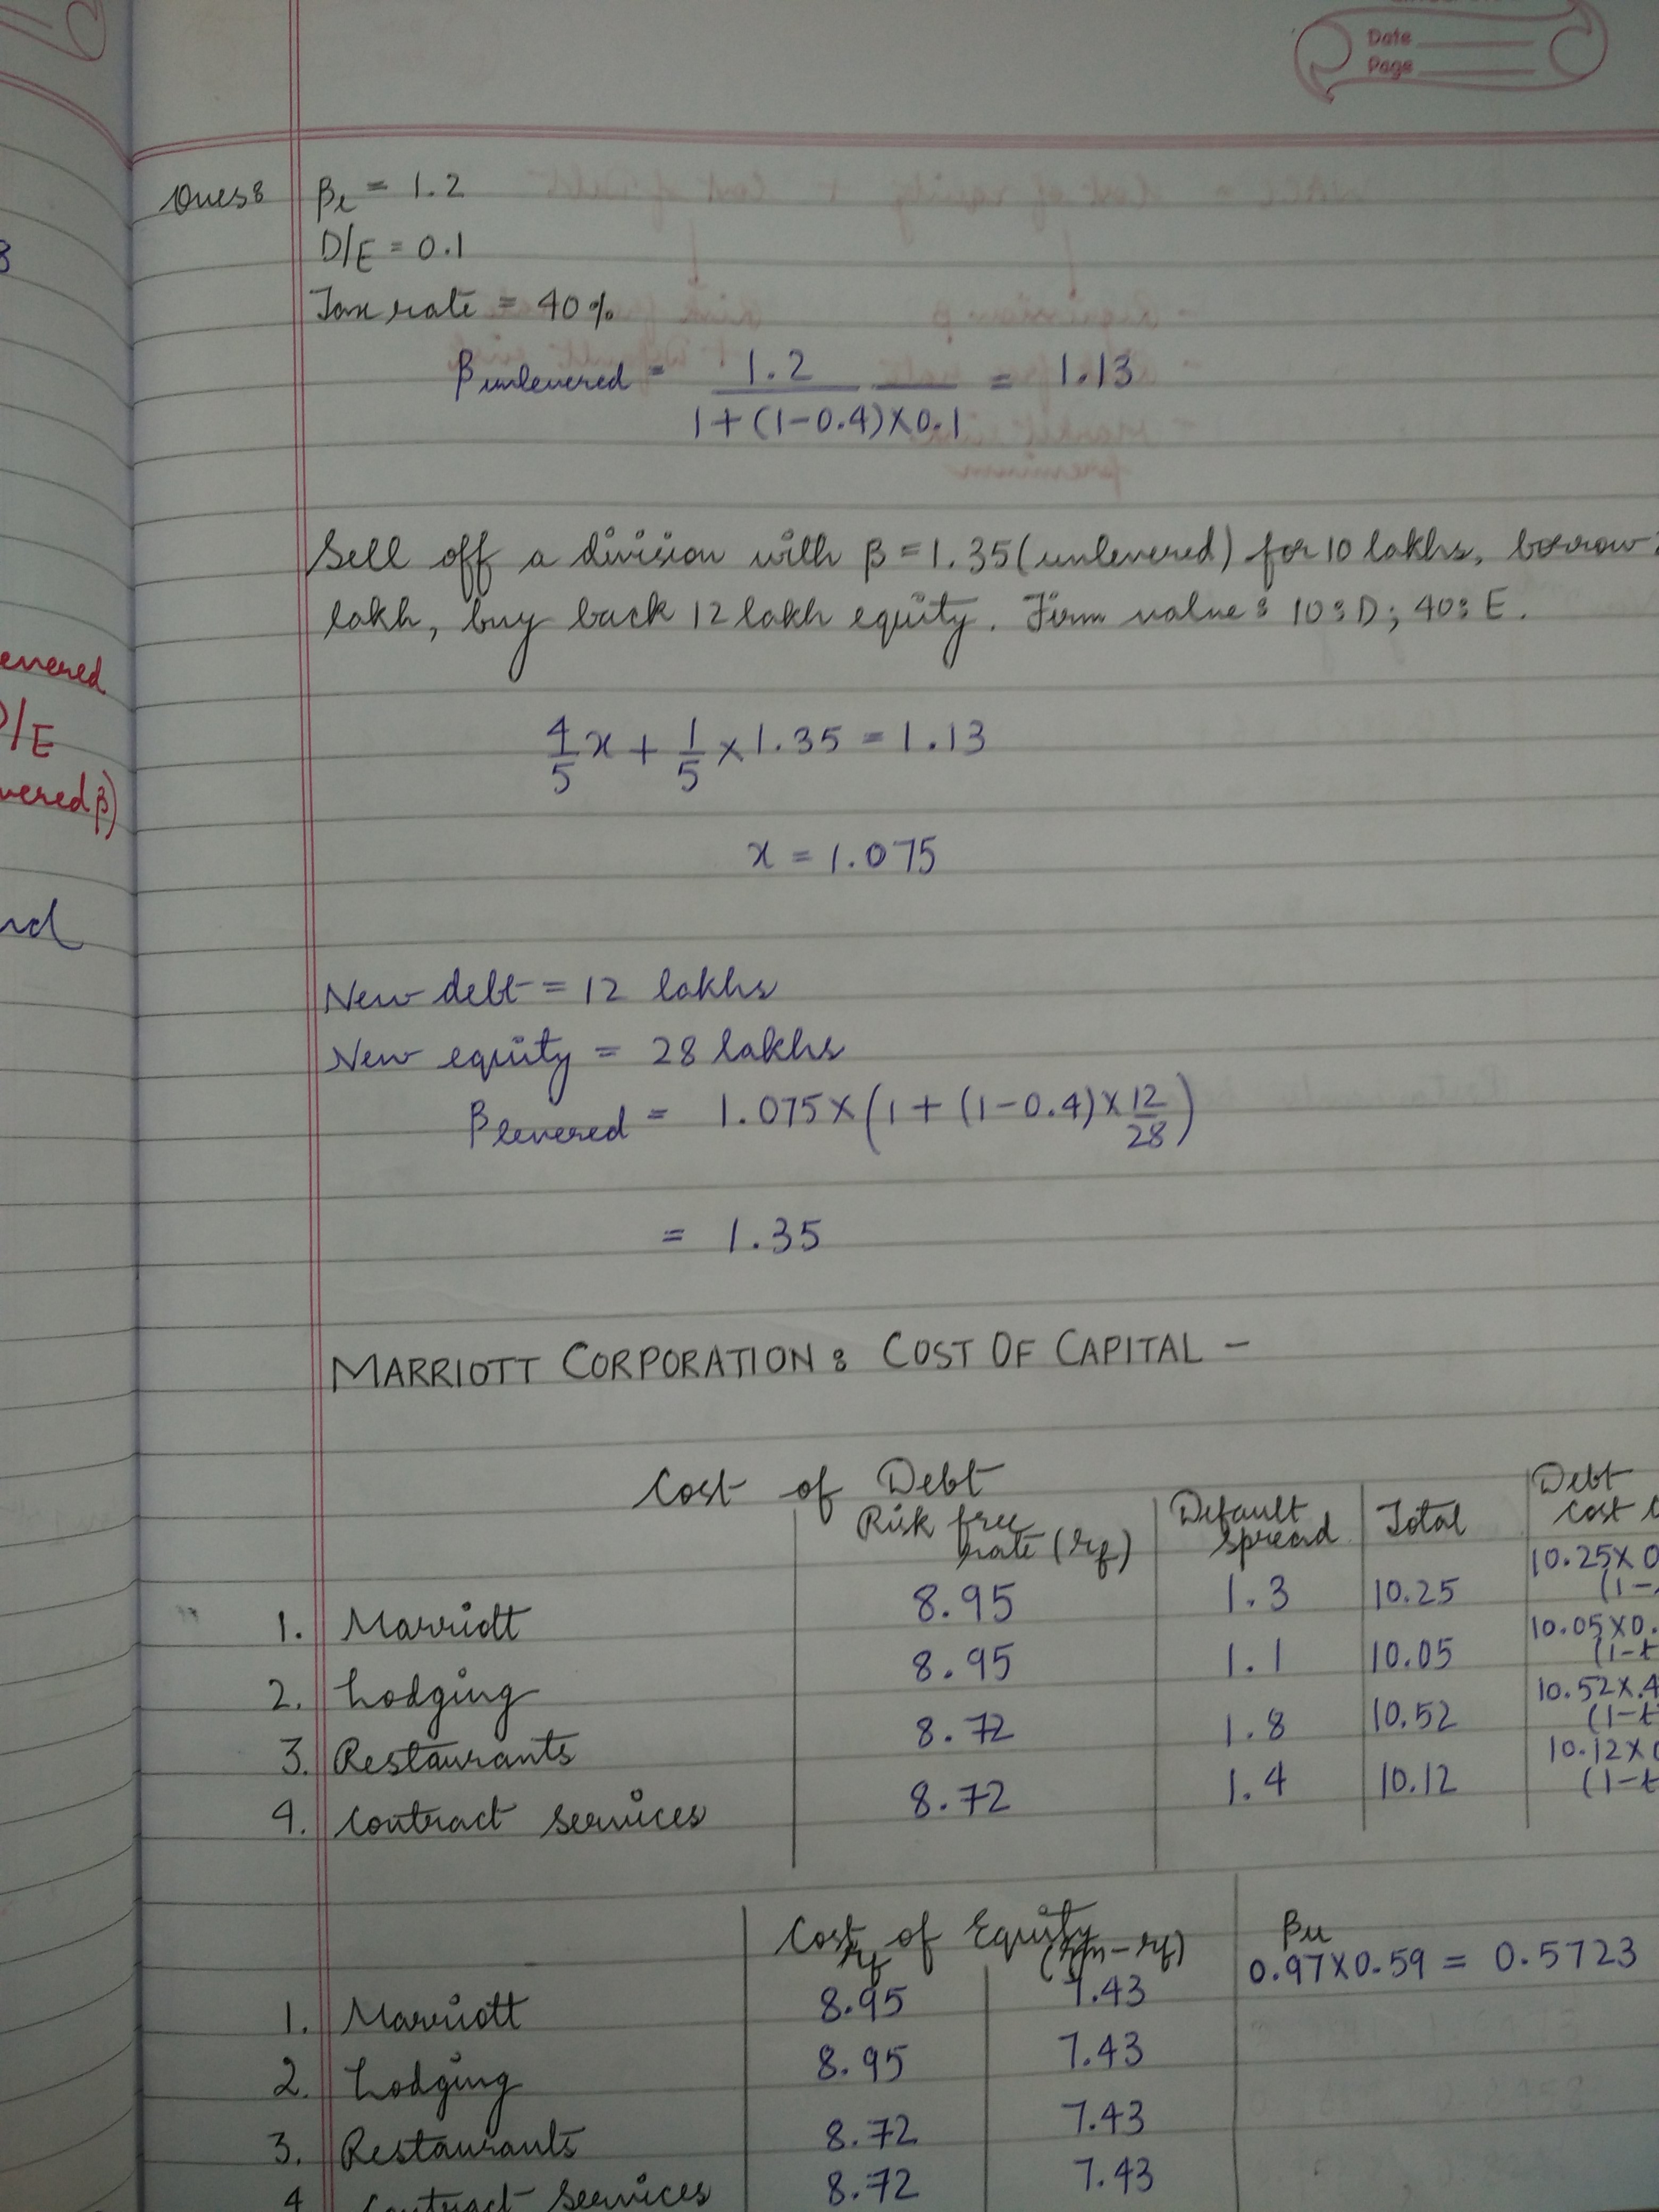 Date
Page
Ques: βL = 1.2
D/E = 0.1
Tax rate = 40%
β unlevered = 1.2 / 1+(1-0.4)×0.1 = 1.13
Sell off a division with β = 1.35 (unlevered) for 10 lakhs, borrow
lakh, buy back 12 lakh equity. Firm value: 10:D; 40:E.
4/5 x + 1/5 × 1.35 = 1.13
x = 1.075
New debt = 12 lakhs
New equity = 28 lakhs
β levered = 1.075×(1+(1-0.4)×12/28)
= 1.35
MARRIOTT CORPORATION: COST OF CAPITAL -
Cost of Debt
Risk free rate (rf) Default spread Total Debt cost
1. Marriott 8.95 1.3 10.25 10.25×0 (1-
2. Lodging 8.95 1.1 10.05 10.05×0. (1-t
3. Restaurants 8.72 1.8 10.52 10.52×.4 (1-t
4. Contract services 8.72 1.4 10.12 10.12×0 (1-t
Cost of Equity
rf (rm-rf) βu
1. Marriott 8.95 7.43 0.97×0.59 = 0.5723
2. Lodging 8.95 7.43
3. Restaurants 8.72 7.43
4. Contract services 8.72 7.43
evered
D/E
vered β)
nd